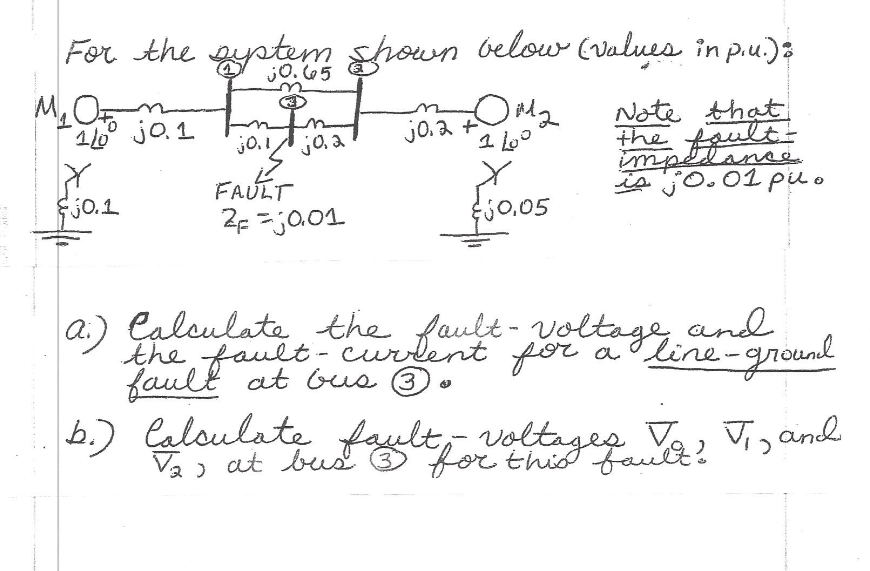 For the system shown below (values in p.u.):
① j0.65 ②
③
M1 M2
1∠0° j0.1 j0.1 j0.2 j0.2 + 1∠0°
Note that
the fault-
impedance
is j0.01 pu.
FAULT
ZF = j0.01
j0.1
j0.05
a.) Calculate the fault-voltage and
the fault-current for a line-ground
fault at bus ③.
b.) Calculate fault-voltages V̅0, V̅1, and
V̅2, at bus ③ for this fault.